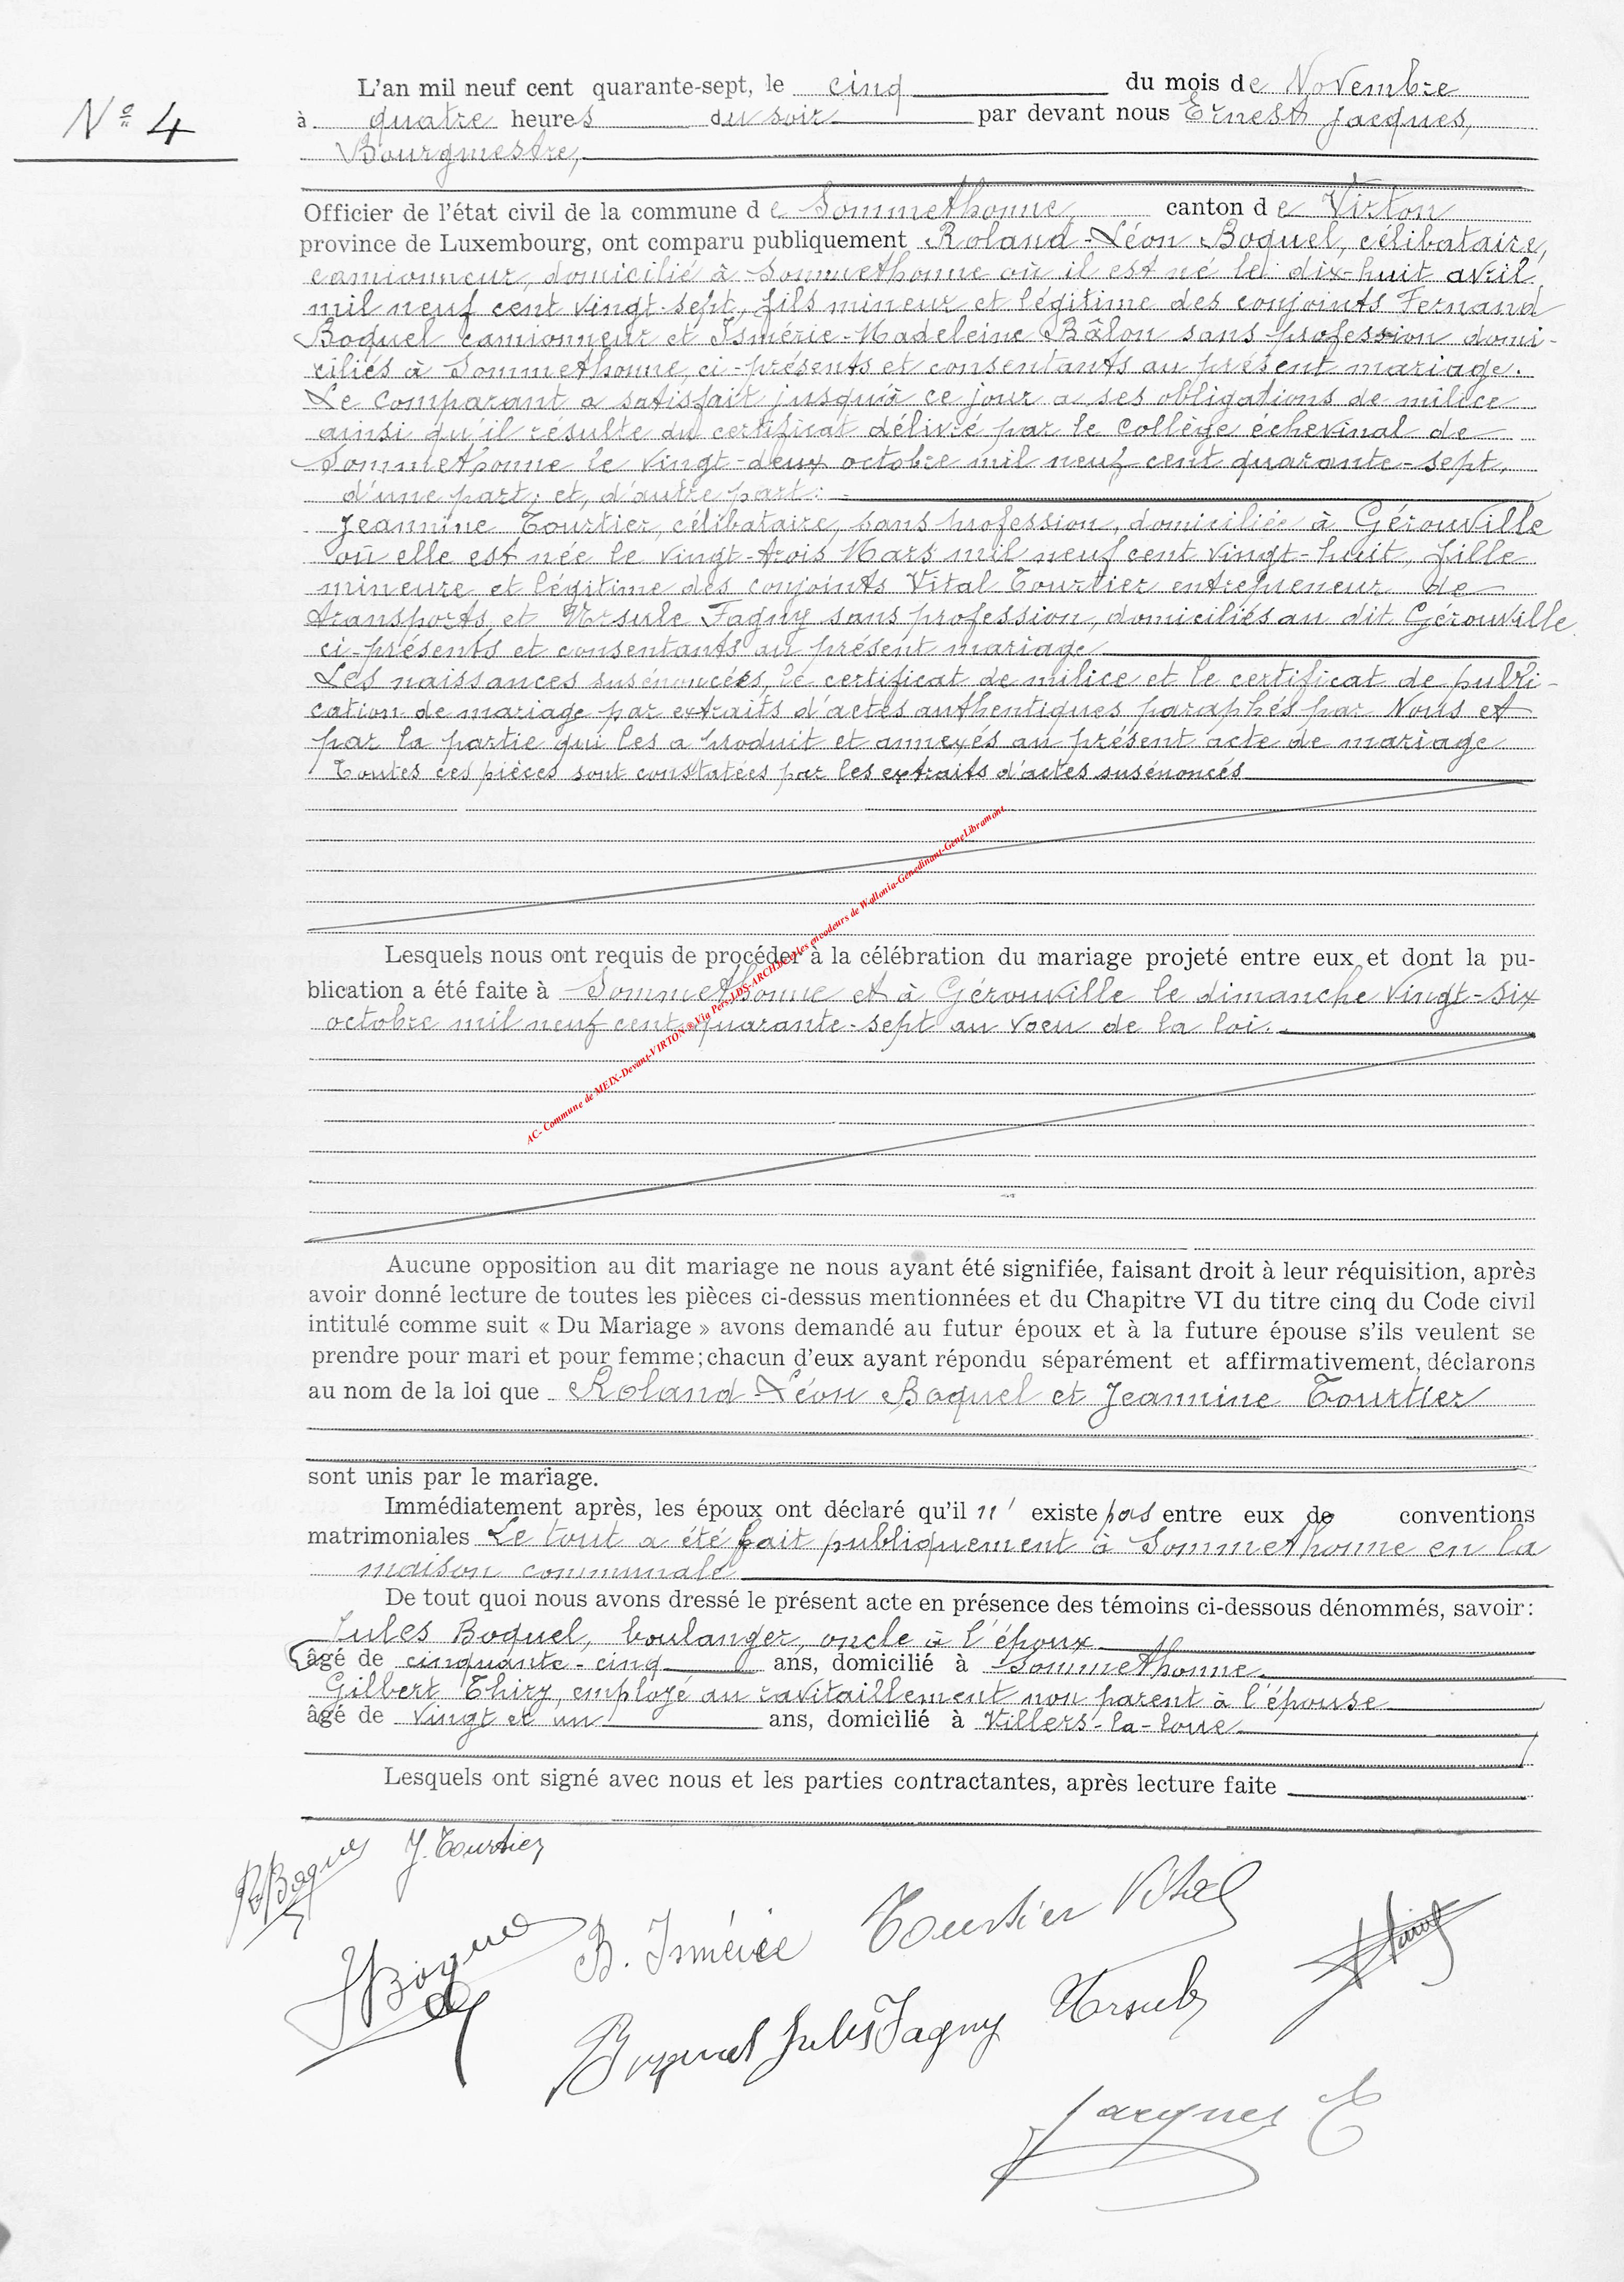 N° 4
L'an mil neuf cent quarante-sept, le cinq du mois de Novembre
à quatre heures du soir par devant nous Ernest Jacques,
Bourgmestre,
Officier de l'état civil de la commune de Sommethonne, canton de Virton
province de Luxembourg, ont comparu publiquement Roland-Léon Boquel, célibataire,
camionneur, domicilié à Sommethonne où il est né le dix-huit avril
mil neuf cent vingt-sept, fils mineur et légitime des conjoints Fernand
Boquel camionneur et Ismérie-Madeleine Bâlon sans profession domi-
ciliés à Sommethonne, ci-présents et consentants au présent mariage.
Le comparant a satisfait jusqu'à ce jour a ses obligations de milice
ainsi qu'il résulte du certificat délivré par le Collège échevinal de
Sommethonne le vingt-deux octobre mil neuf cent quarante-sept,
d'une part; et, d'autre part:
Jeannine Tourtier, célibataire, sans profession, domiciliée à Gérouville
où elle est née le vingt-trois Mars mil neuf cent vingt-huit, fille
mineure et légitime des conjoints Vital Tourtier entrepreneur de
transports et Ursule Fagny sans profession, domiciliés au dit Gérouville
ci-présents et consentants au présent mariage
Les naissances susénoncées, le certificat de milice et le certificat de publi-
cation de mariage par extraits d'actes authentiques paraphés par Nous et
par la partie qui les a produit et annexés au présent acte de mariage
Toutes ces pièces sont constatées par les extraits d'actes susénoncés
AC- Commune de MEIX-Devant-VIRTON®Via Pers-LDS-ARCH.be et les encodeurs de Wallonia-Genedinant-GeneLibramont.
Lesquels nous ont requis de procéder à la célébration du mariage projeté entre eux et dont la pu-
blication a été faite à Sommethonne et à Gérouville le dimanche vingt-six
octobre mil neuf cent quarante-sept au voeu de la loi.
Aucune opposition au dit mariage ne nous ayant été signifiée, faisant droit à leur réquisition, après
avoir donné lecture de toutes les pièces ci-dessus mentionnées et du Chapitre VI du titre cinq du Code civil
intitulé comme suit « Du Mariage » avons demandé au futur époux et à la future épouse s'ils veulent se
prendre pour mari et pour femme; chacun d'eux ayant répondu séparément et affirmativement, déclarons
au nom de la loi que Roland-Léon Boquel et Jeannine Tourtier
sont unis par le mariage.
Immédiatement après, les époux ont déclaré qu'il n' existe pas entre eux de conventions
matrimoniales Le tout a été fait publiquement à Sommethonne en la
maison communale
De tout quoi nous avons dressé le présent acte en présence des témoins ci-dessous dénommés, savoir:
Jules Boquel, boulanger, oncle à l'époux
âgé de cinquante-cinq ans, domicilié à Sommethonne.
Gilbert Thiry, employé au ravitaillement non parent à l'épouse
âgé de vingt et un ans, domicilié à Villers-la-loue
Lesquels ont signé avec nous et les parties contractantes, après lecture faite
R Boquel J. Tourtier
Boquel B. Ismérie Tourtier Vital
Boquel Jules Fagny Ursule
Jacques E